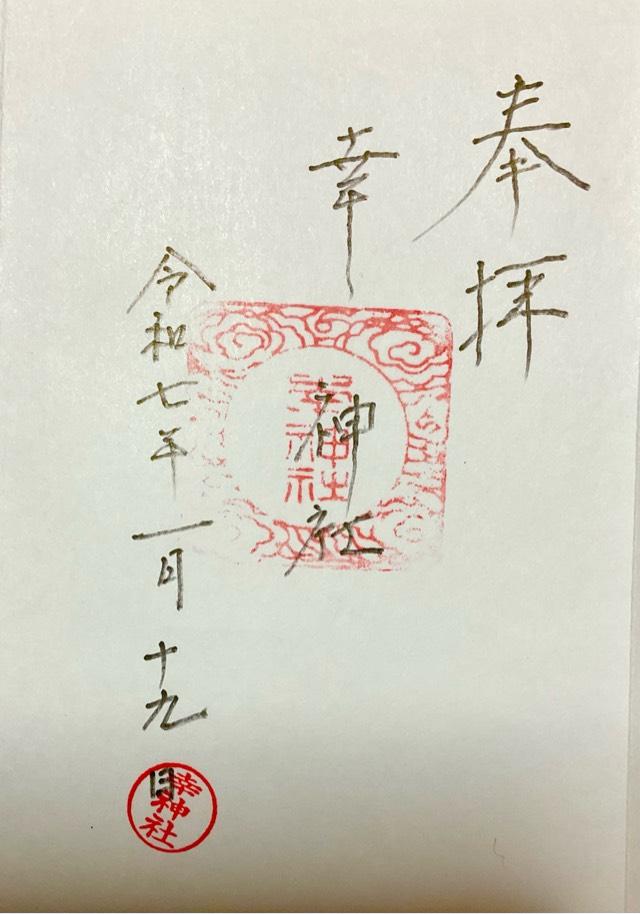 奉拝
幸神社
幸神社
令和七年一月十九日
幸神社